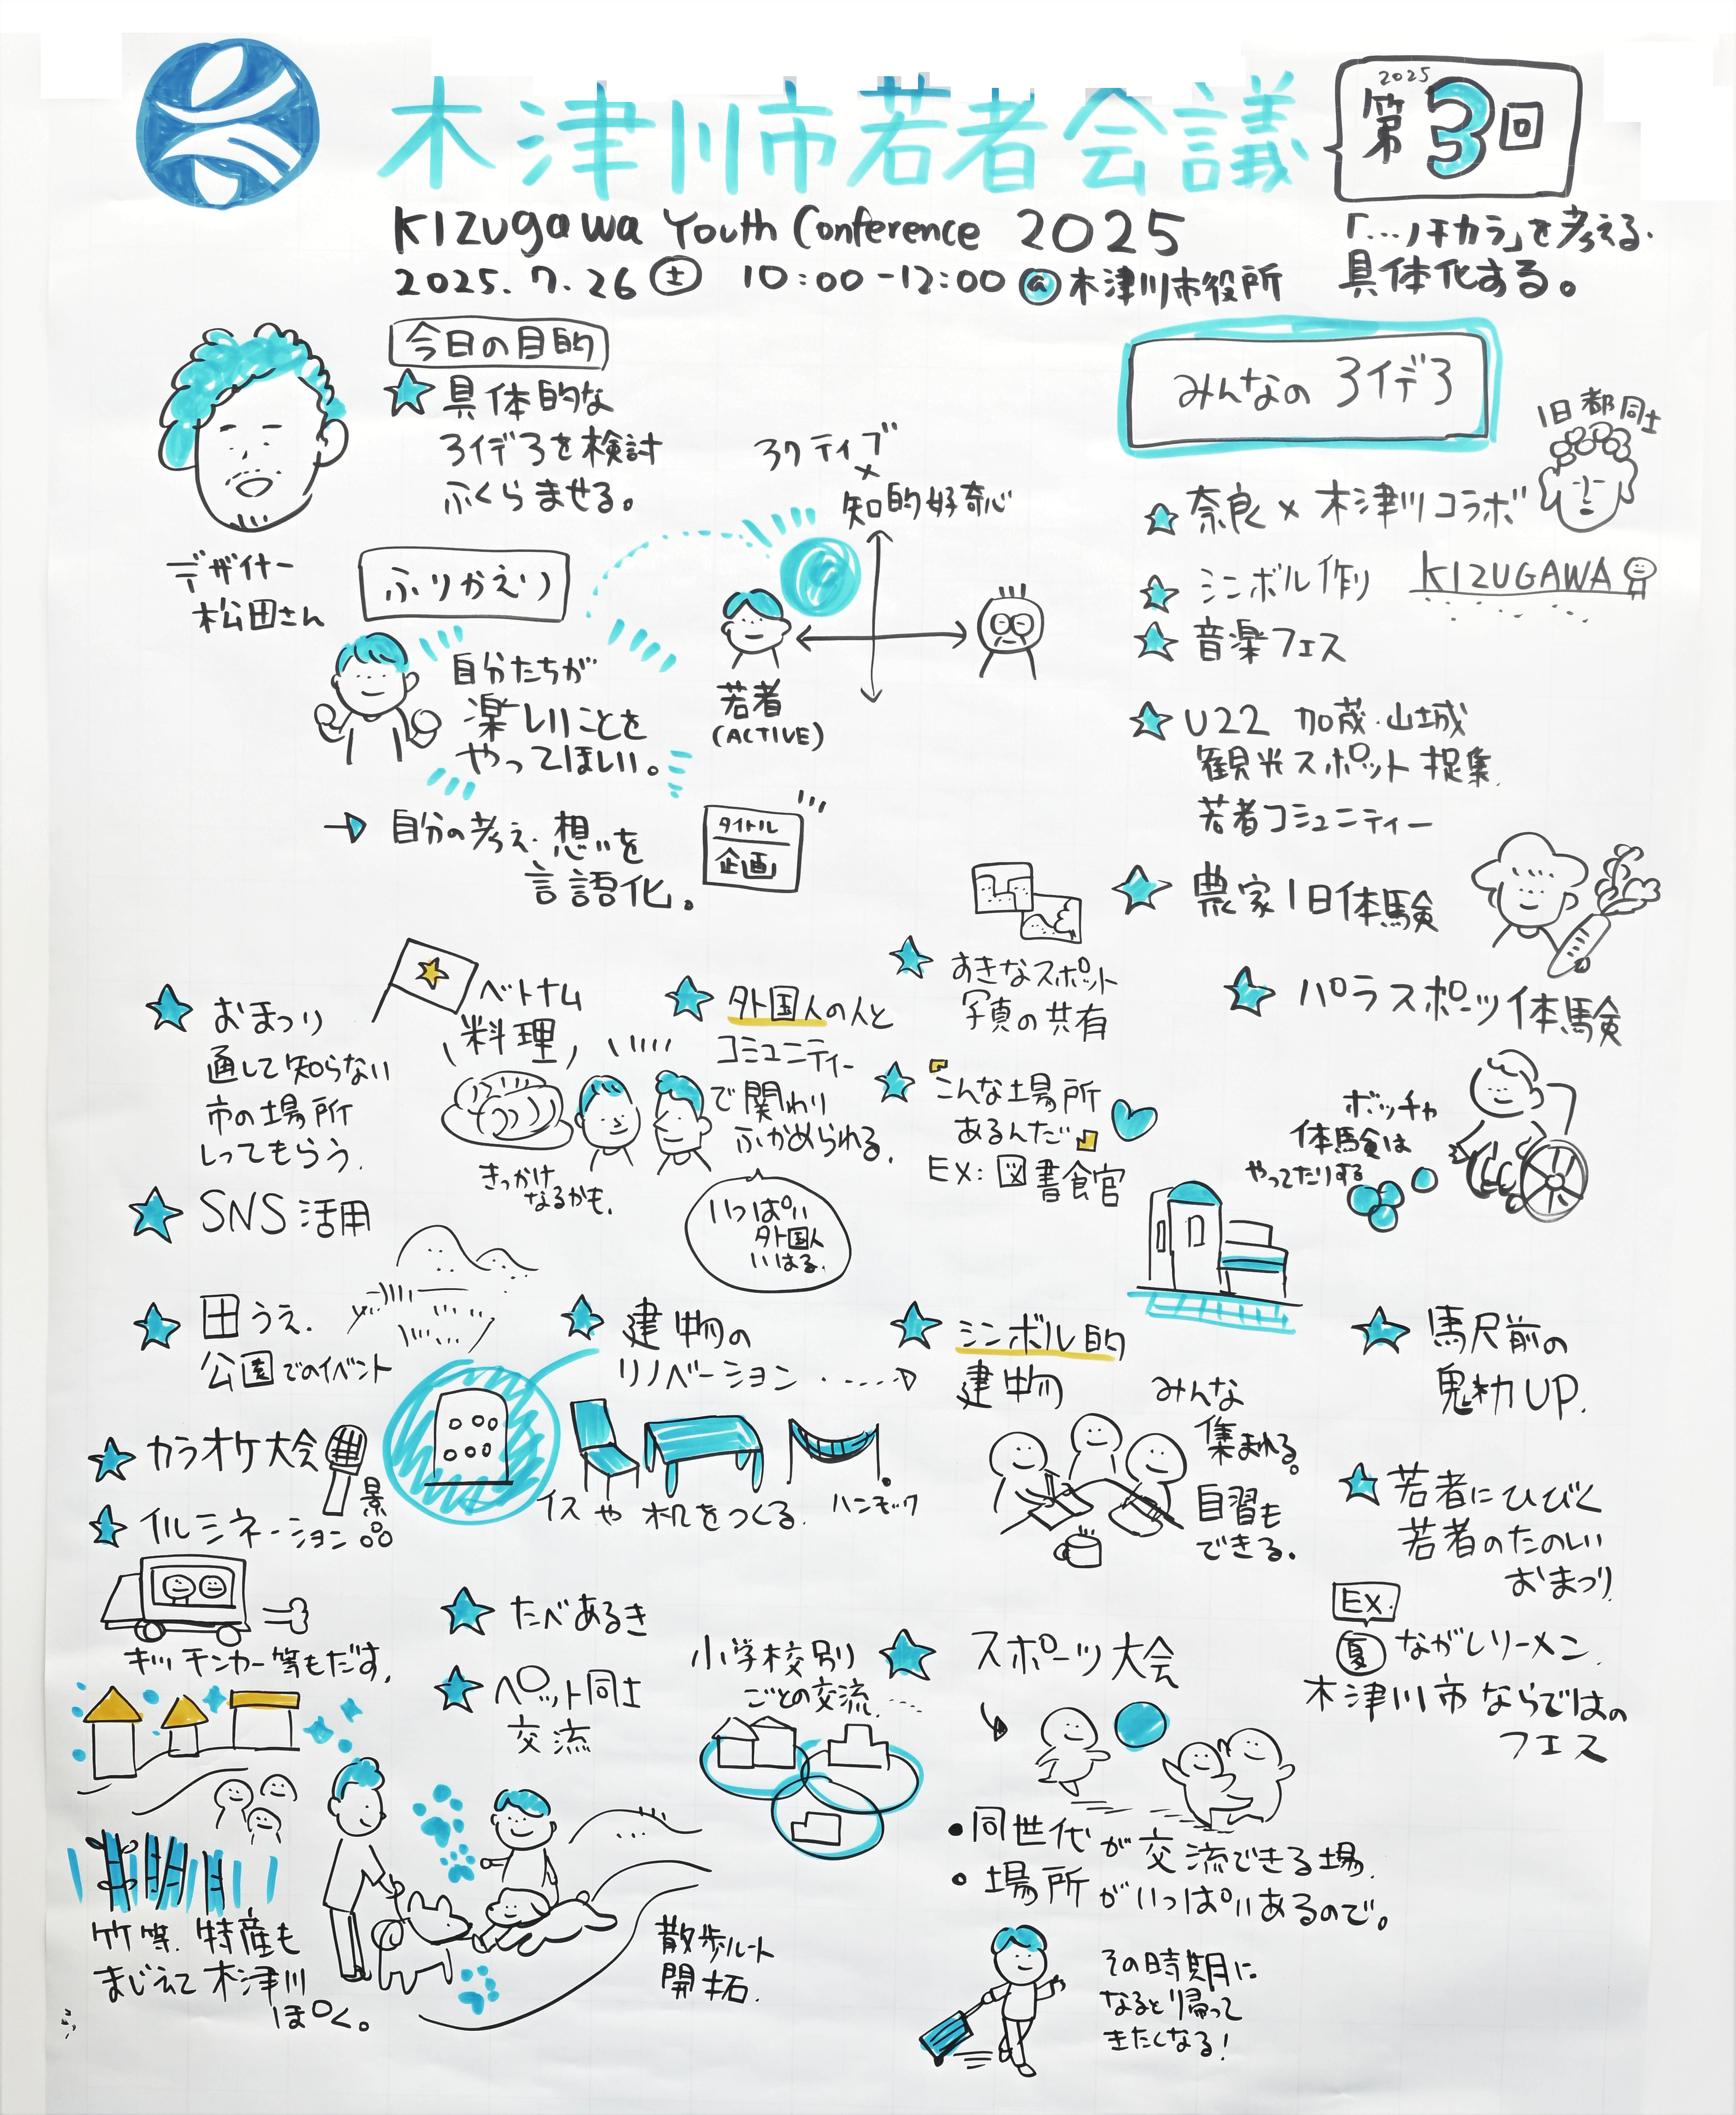 木津川市若者会議
2025
第3回
KIZUGAWA Youth Conference 2025
2025.7.26(土) 10:00-12:00 @木津川市役所
「…ノチカラ」を考える。
具体化する。
今日の目的
具体的な
アイデアを検討
ふくらませる。
デザイナー
松田さん
ふりかえり
自分たちが
楽しいことを
やってほしい。
→自分の考え・想いを
言語化。
タイトル
企画
アクティブ
×
知的好奇心
若者
(ACTIVE)
みんなのアイデア
旧都同士
奈良×木津川コラボ
シンボル作り
KIZUGAWA
音楽フェス
U22 加茂・山城
観光スポット捉集
若者コミュニティー
農家1日体験
パラスポーツ体験
ボッチャ
体験は
やってたりする
おまつり
通して知らない
市の場所
しってもらう。
ベトナム
料理
きっかけ
なるかも。
外国人の人と
コミュニティー
で関わり
ふかめられる。
いっぱい
外国人
いはる。
すきなスポット
写真の共有
「こんな場所
あるんだ」
EX: 図書館
SNS活用
田うえ.
公園でのイベント
建物の
リノベーション
イスや机をつくる.
ハンモック
シンボル的
建物
みんな
集まれる。
自習も
できる.
駅前の
魅力UP.
カラオケ大会
イルミネーション
景
キッチンカー等もだす.
竹等.特産も
まじえて木津川
ぽく。
たべあるき
ペット同士
交流
散歩ルート
開拓.
小学校別
ごとの交流
スポーツ大会
・同世代が交流できる場.
・場所がいっぱいあるので。
その時期に
なると帰って
きたくなる!
若者にひびく
若者のたのしい
おまつり
EX.
夏 ながしラーメン.
木津川市ならではの
フェス